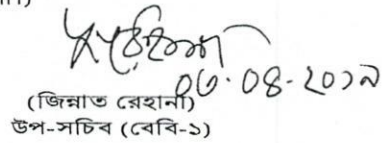 ০৩.০৪-২০১৯
(জিন্নাত রেহানা)
উপ-সচিব (বেবি-১)